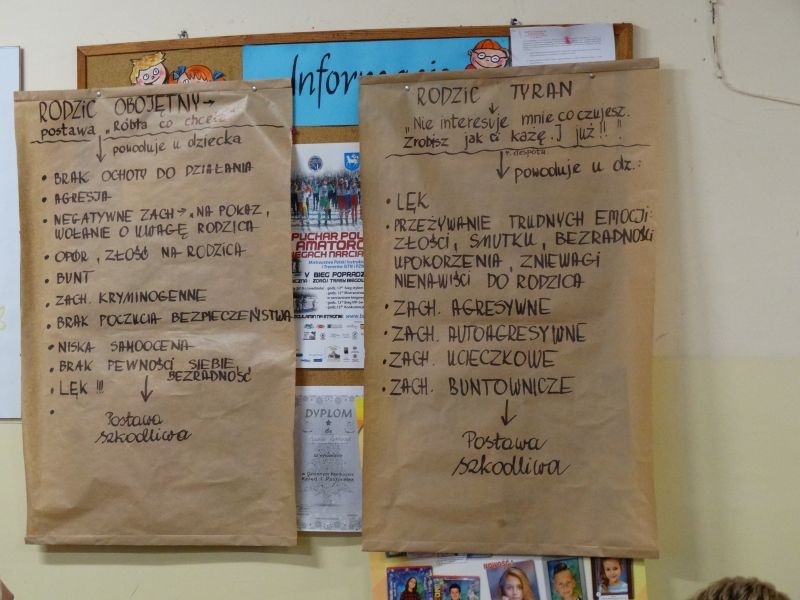 RODZIC OBOJĘTNY →
postawa „Róbta co chceta"
powoduje u dziecka
• BRAK OCHOTY DO DZIAŁANIA
• AGRESJA
• NEGATYWNE ZACH → „NA POKAZ,
WOŁANIE O UWAGĘ RODZICA
• OPÓR, ZŁOŚĆ NA RODZICA
• BUNT
• ZACH. KRYMINOGENNE
• BRAK POCZUCIA BEZPIECZEŃSTWA
• NISKA SAMOOCENA
• BRAK PEWNOŚCI SIEBIE,
BEZRADNOŚĆ
• LĘK !!!
•
Postawa
szkodliwa
Informacje
PUCHAR POL
AMATORÓ
BIEGACH NARCIA
V BIEG POPRADZ
DYPLOM
dla
RODZIC TYRAN
„Nie interesuje mnie co czujesz.
Zrobisz jak ci każę. I już!!".
powoduje u dz.:
• LĘK
• PRZEŻYWANIE TRUDNYCH EMOCJI:
ZŁOŚCI, SMUTKU, BEZRADNOŚCI
UPOKORZENIA, ZNIEWAGI
NIENAWIŚCI DO RODZICA
• ZACH. AGRESYWNE
• ZACH. AUTOAGRESYWNE
• ZACH. UCIECZKOWE
• ZACH. BUNTOWNICZE
Postawa
szkodliwa
NOWOŚĆ!